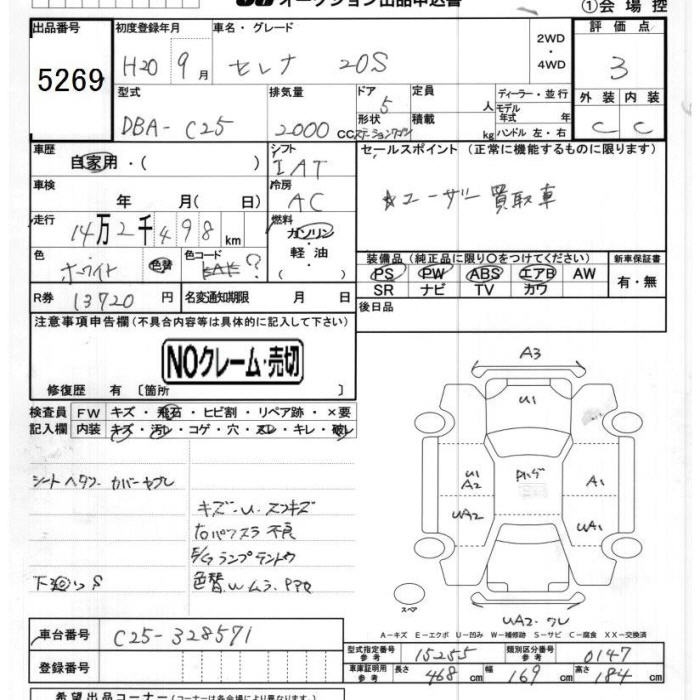 オークション出品申込書
①会場控
出品番号 初度登録年月 車名・グレード 2WD・4WD 評価点
5269 H20 9月 セレナ 20S 3
型式 排気量 ドア 定員 ディーラー・並行 外装 内装
DBA-C25 2000CC 5 人 モデル年式 年 C C
形状 積載 kg ハンドル 左・右
ステーションワゴン
車歴 シフト セールスポイント (正常に機能するものに限ります)
自家用・( ) IAT
車検 冷房
年 月( 日) AC ☆ユーザー買取車
走行 燃料
14万2千498km ガソリン・軽油・( )
色 カラーコード
ホワイト 色替 ?
装備品 (純正品に限り○をつけてください) 新車保証書
PS PW ABS エアB AW 有・無
SR ナビ TV カワ
R券 13720円 名変通知期限 月 日 後日品
注意事項申告欄(不具合内容等は具体的に記入して下さい)
NOクレーム・売切
修復歴 有 [箇所 ]
検査員 FW キズ・飛石・ヒビ割・リペア跡・×要
記入欄 内装 キズ・汚レ・コゲ・穴・スレ・キレ・破レ
シートヘタリ カバーヤブレ
キズ・U・スリキズ
右パワスラ不良
E/Gランプテントウ
下廻りS 色替W ムラ
A3
U1
U1
A2
A1
UA2
UA1
スペア
UA2・ワレ
A-キズ E-エクボ U-凹み W-補修跡 S-サビ C-腐食 XX-交換済
車台番号 C25-328571
登録番号
型式指定番号 参考 15255 類別区分番号 参考 0147
車庫証明用 参考 長さ 468cm 幅 169cm 高さ 184cm
希望出品コーナー